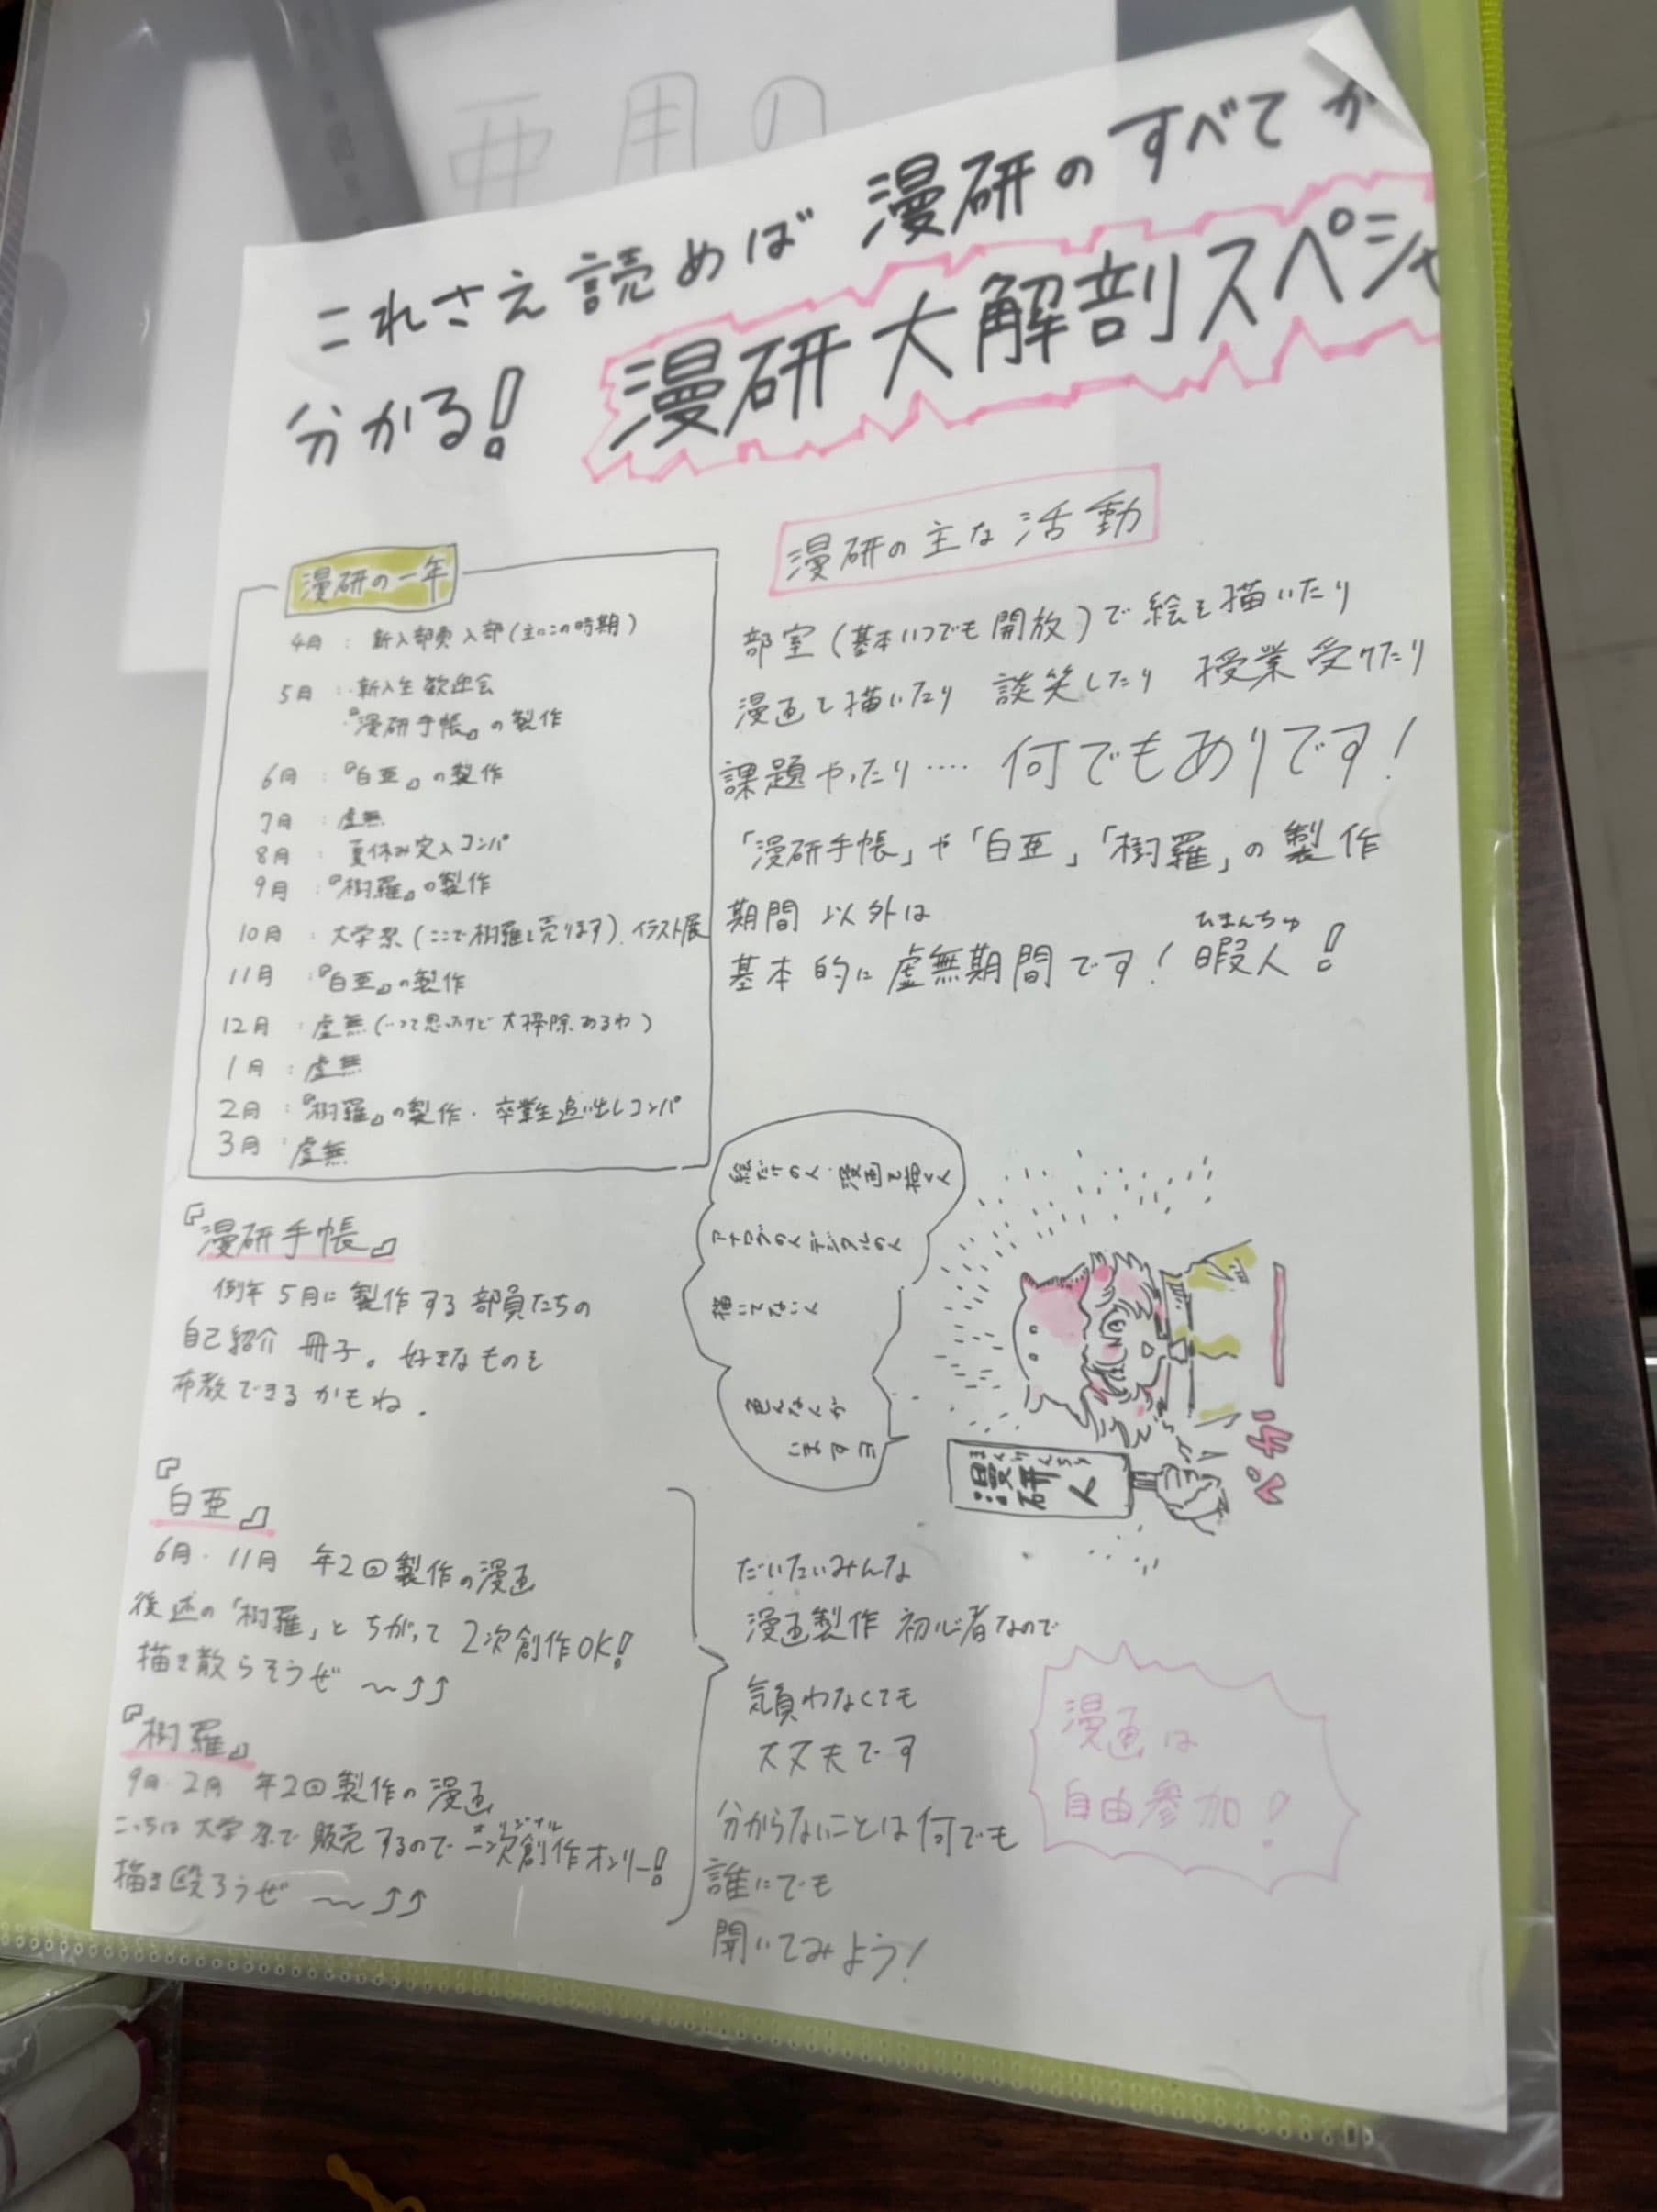 亜用の
これさえ読めば 漫研のすべてが
分かる!
漫研大解剖スペシャ
漫研の一年
4月 : 新入部員入部(主にこの時期)
5月 : ・新入生歓迎会
・『漫研手帳』の製作
6月 : 『白亜』の製作
7月 : 虚無
8月 : 夏休み突入コンパ
9月 : 『樹羅』の製作
10月 : 大学祭(ここで樹羅を売ります)、イラスト展
11月 : 『白亜』の製作
12月 : 虚無(って思ったけど大掃除あるわ)
1月 : 虚無
2月 : 『樹羅』の製作・卒業生追い出しコンパ
3月 : 虚無
漫研の主な活動
部室(基本いつでも開放)で絵を描いたり
漫画を描いたり 談笑したり 授業受けたり
課題やったり‥‥ 何でもありです!
「漫研手帳」や「白亜」「樹羅」の製作
期間以外は
基本的に虚無期間です! 暇人!
ひまんちゅ
『漫研手帳』
例年5月に製作する部員たちの
自己紹介冊子。好きなものを
布教できるかもね.
『白亜』
6月・11月 年2回製作の漫画
後述の「樹羅」とちがって2次創作OK!
描き散らそうぜ 〜⤴⤴
『樹羅』
9月・2月 年2回製作の漫画
こっちは大学祭で販売するので一次創作オンリー!
オリジナル
描き殴ろうぜ 〜⤴⤴
絵だけの人・漫画を描く人
アナログの人 デジタルの人
描いてない人
色んな人が
いますヨ
漫研人
ペチー
だいたいみんな
漫画製作初心者なので
気負わなくても
大丈夫です
分からないことは何でも
誰にでも
聞いてみよう!
漫画は
自由参加!